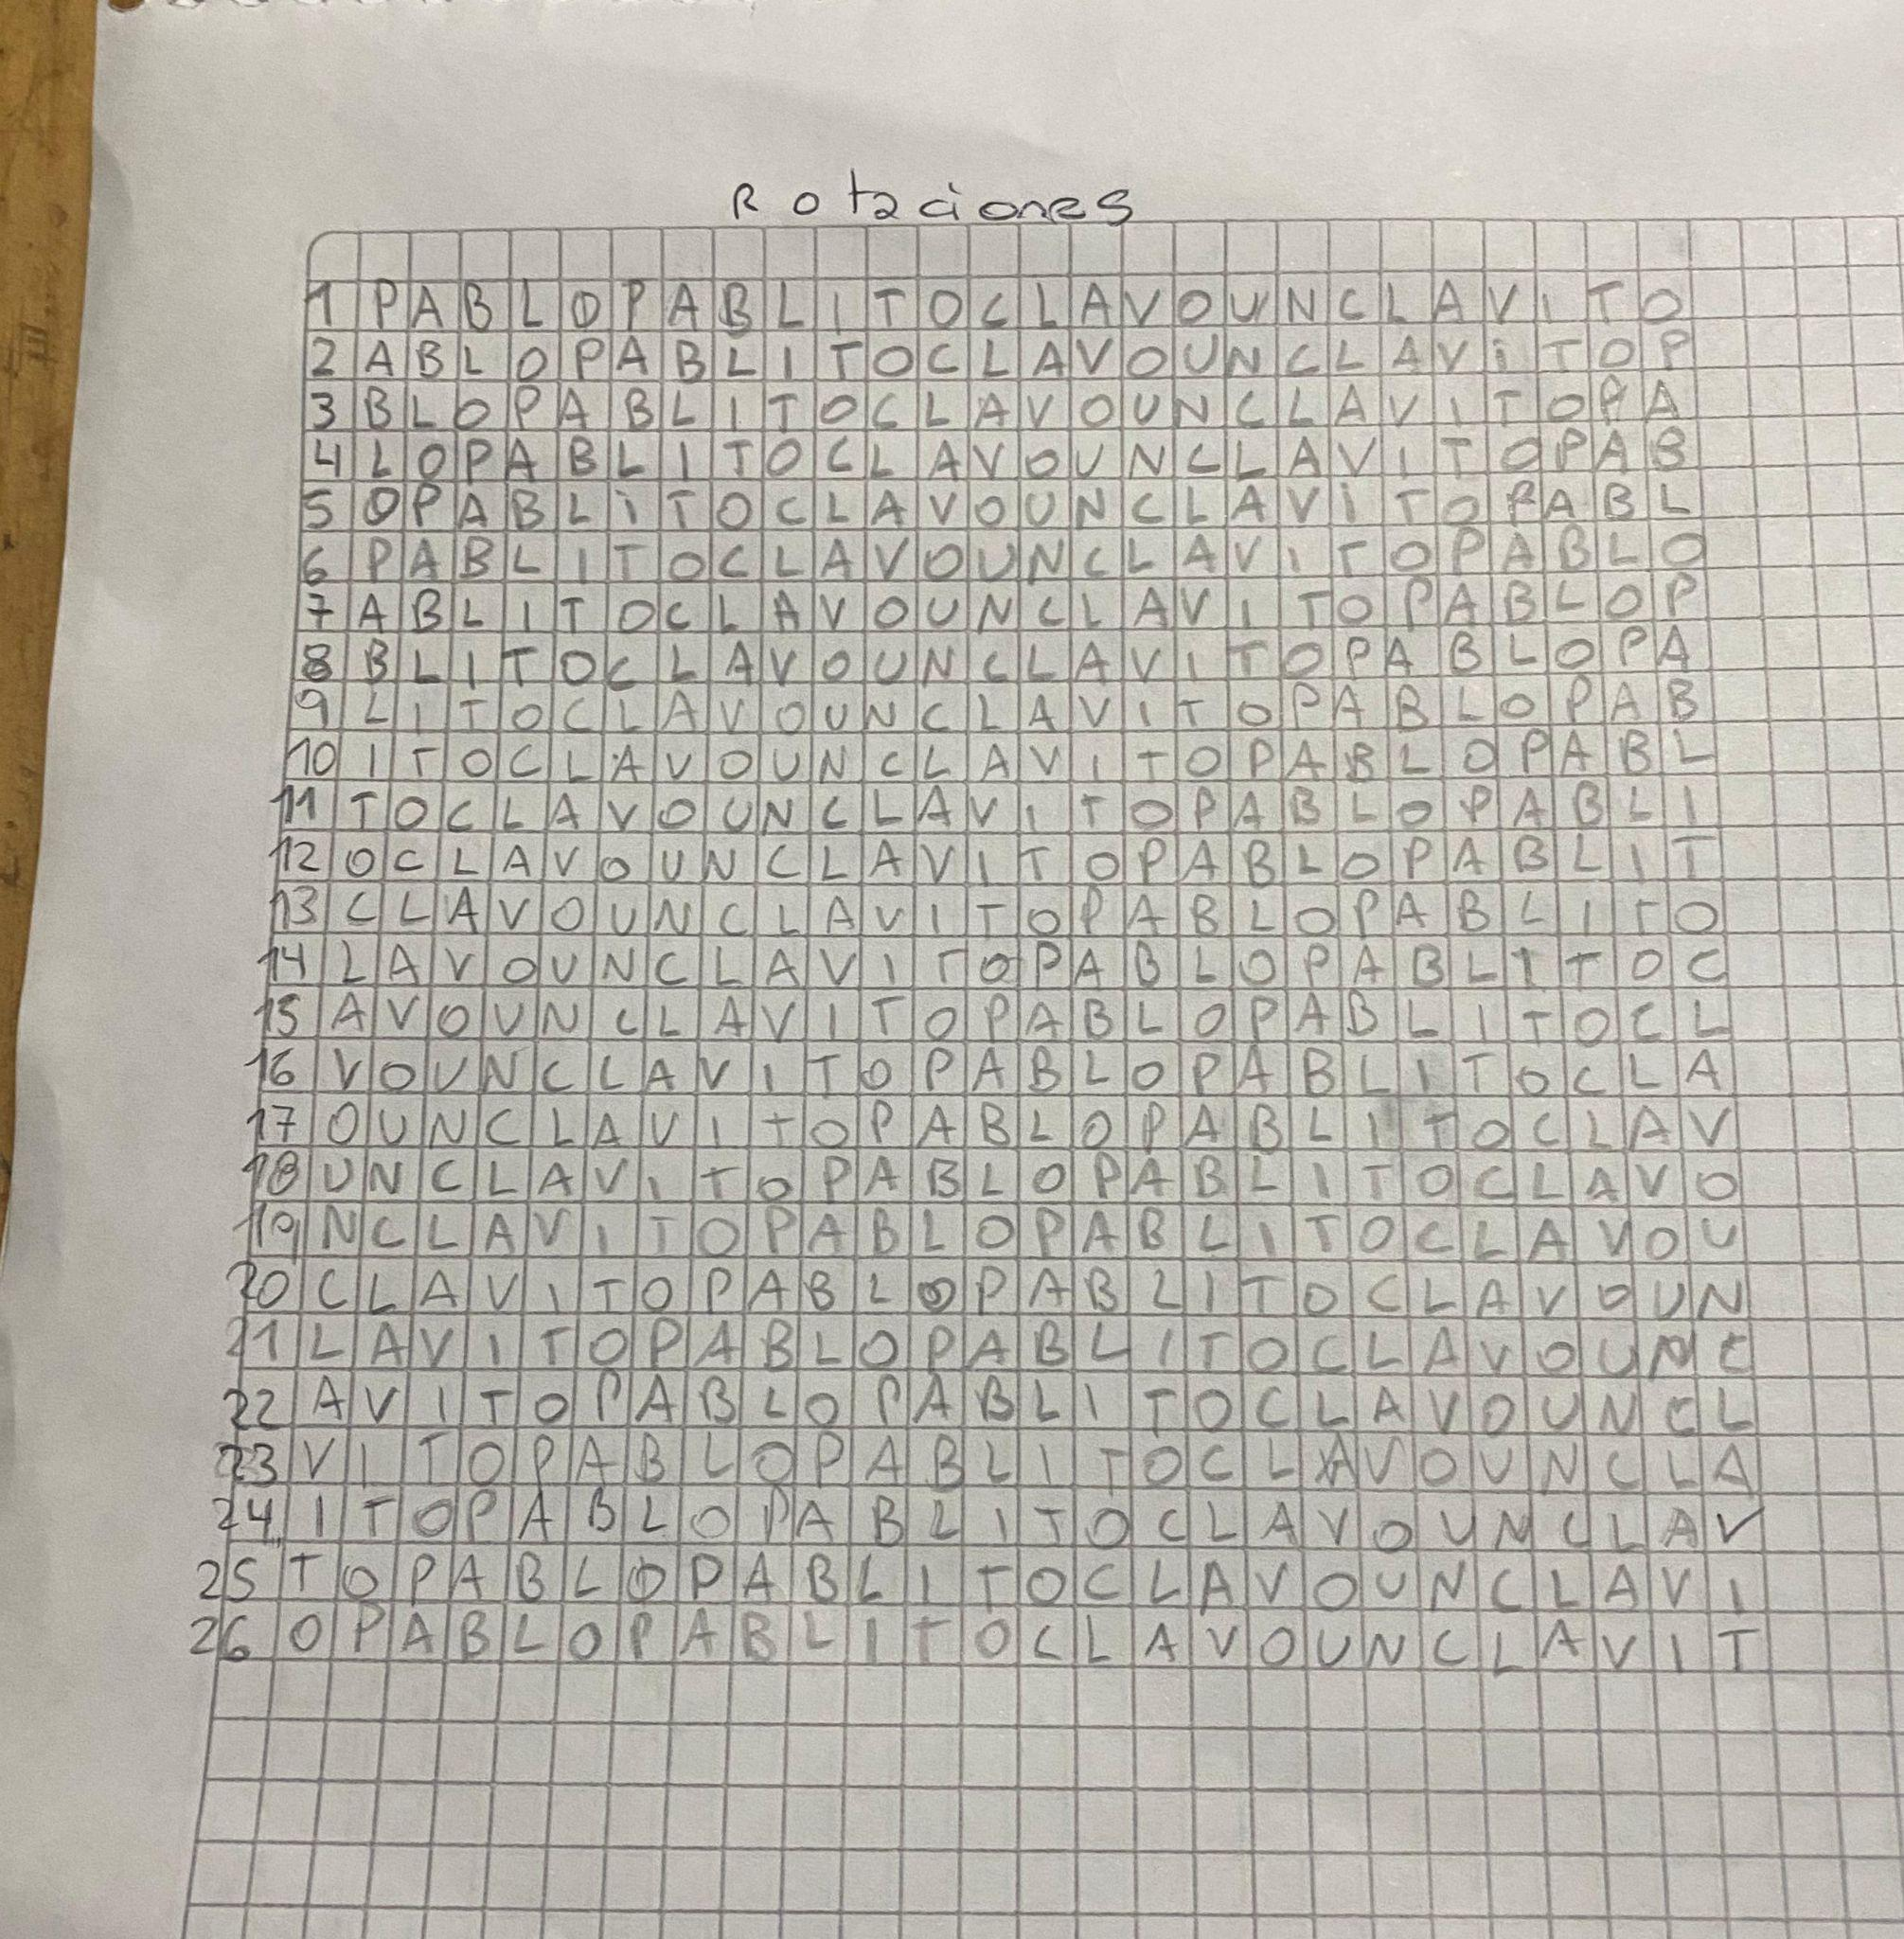 Rotaciones
1 PABLOPABLITOCLAVOUNCLAVITO
2 ABLOPABLITOCLAVOUNCLAVITOP
3 BLOPABLITOCLAVOUNCLAVITOPA
4 LOPABLITOCLAVOUNCLAVITOPAB
5 OPABLITOCLAVOUNCLAVITOPABL
6 PABLITOCLAVOUNCLAVITOPABLO
7 ABLITOCLAVOUNCLAVITOPABLOP
8 BLITOCLAVOUNCLAVITOPABLOPA
9 LITOCLAVOUNCLAVITOPABLOPAB
10 ITOCLAVOUNCLAVITOPABLOPABL
11 TOCLAVOUNCLAVITOPABLOPABLI
12 OCLAVOUNCLAVITOPABLOPABLIT
13 CLAVOUNCLAVITOPABLOPABLITO
14 LAVOUNCLAVITOPABLOPABLITOC
15 AVOUNCLAVITOPABLOPABLITOCL
16 VOUNCLAVITOPABLOPABLITOCLA
17 OUNCLAVITOPABLOPABLITOCLAV
18 UNCLAVITOPABLOPABLITOCLAVO
19 NCLAVITOPABLOPABLITOCLAVOU
20 CLAVITOPABLOPABLITOCLAVOUN
21 LAVITOPABLOPABLITOCLAVOUNC
22 AVITOPABLOPABLITOCLAVOUNCL
23 VITOPABLOPABLITOCLAVOUNCLA
24 ITOPABLOPABLITOCLAVOUNCLAV
25 TOPABLOPABLITOCLAVOUNCLAVI
26 OPABLOPABLITOCLAVOUNCLAVIT